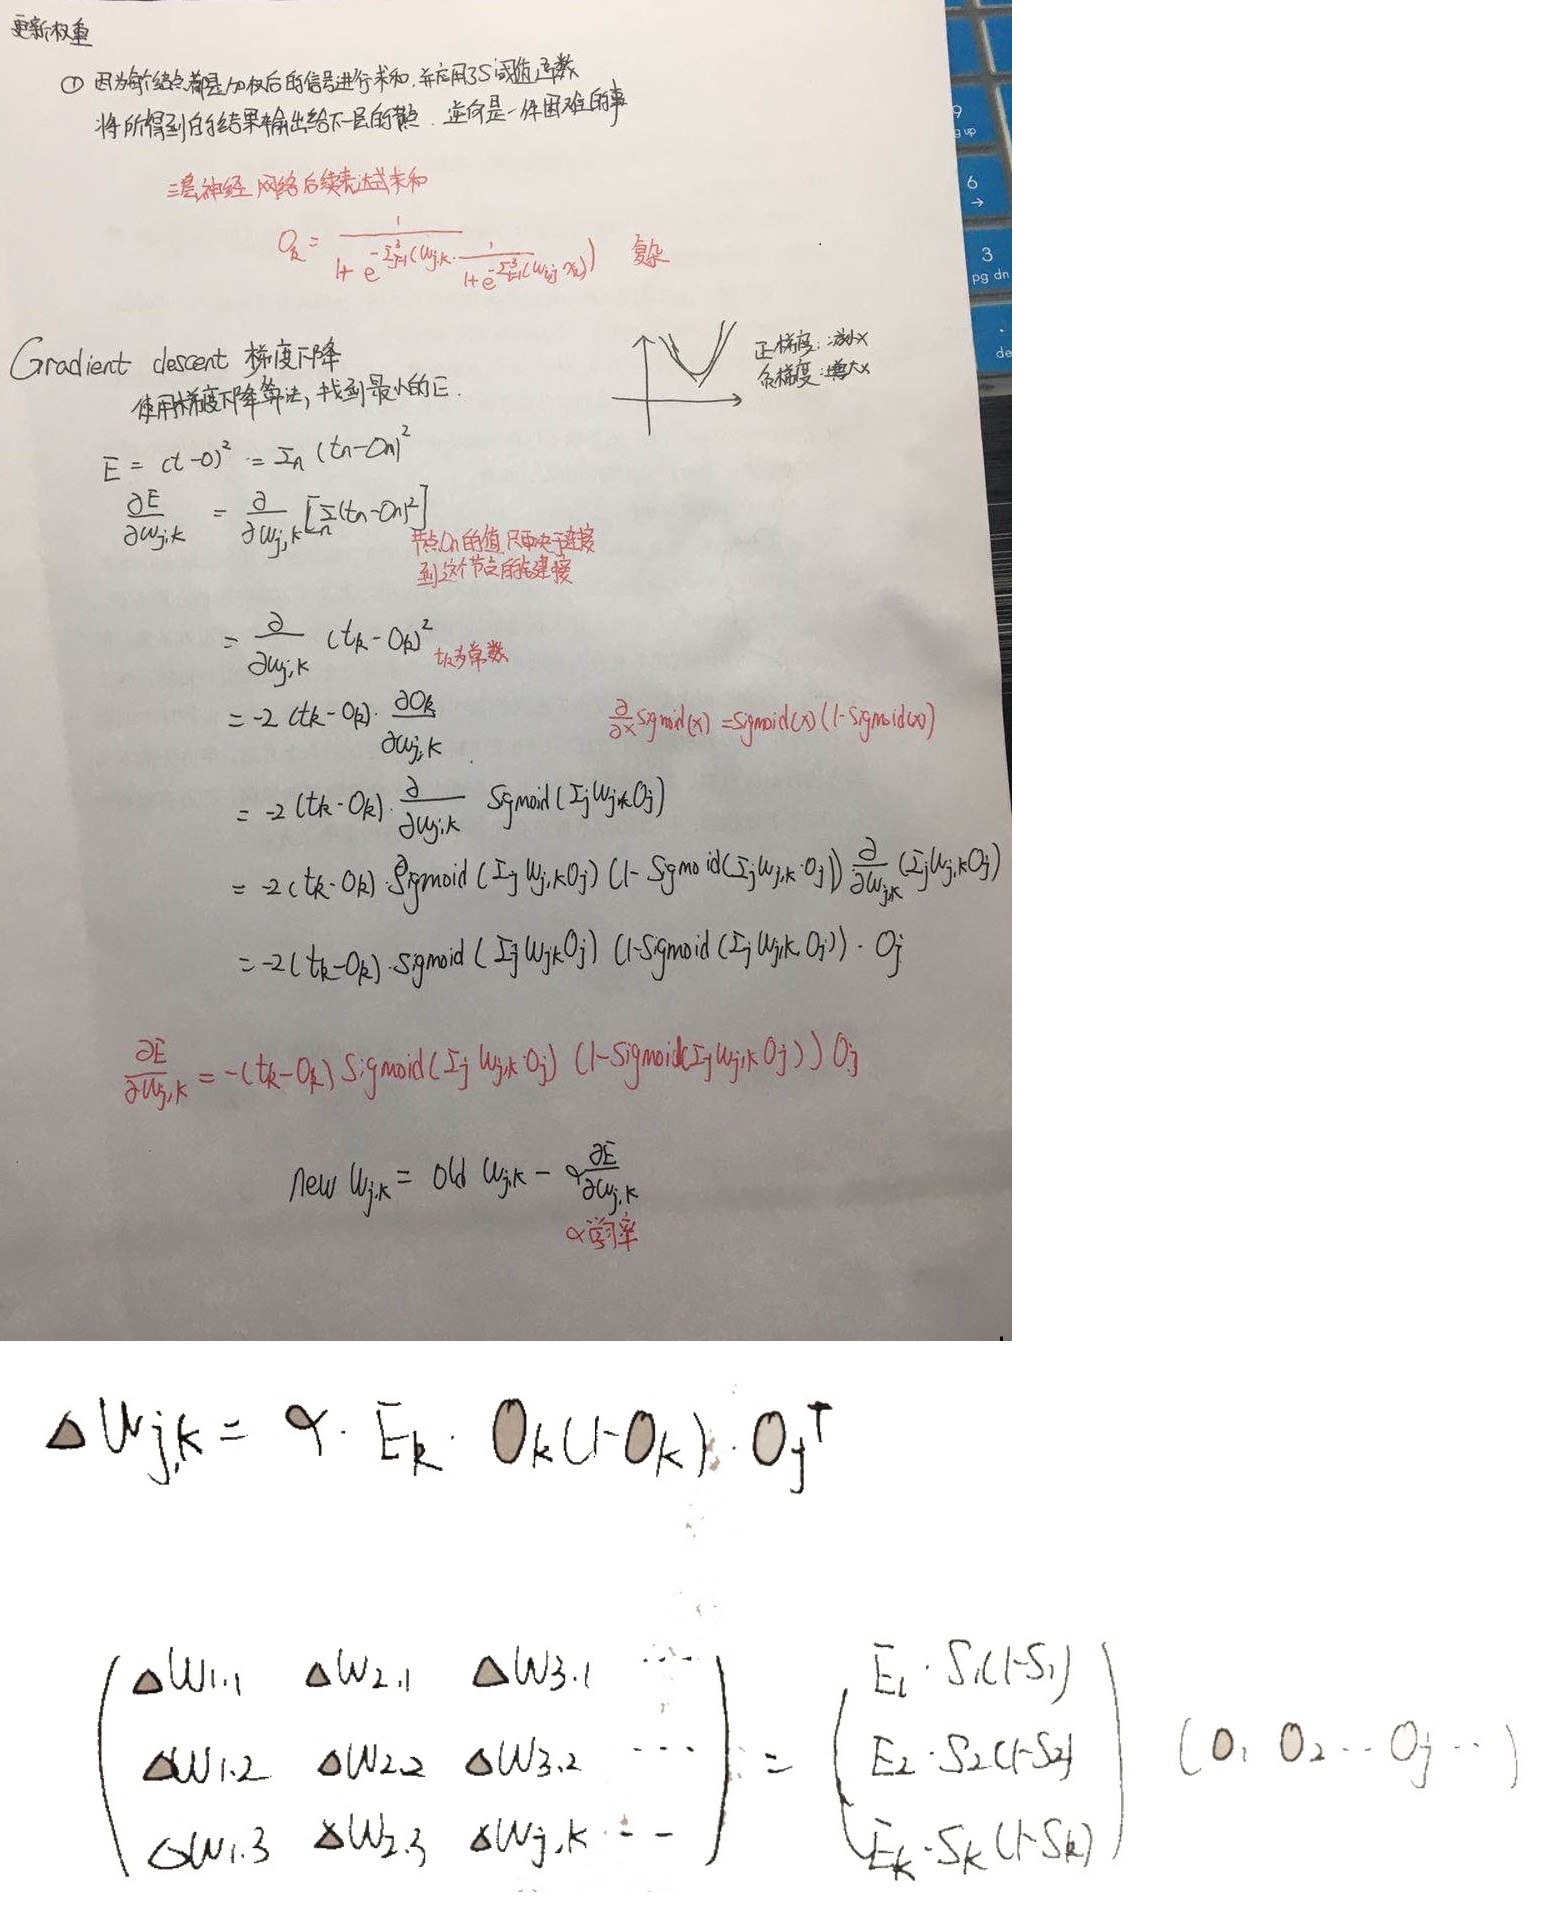 更新权重
① 因为每个结点都是加权后的信号进行求和，并应用了S阈值函数
将所得到的结果输出给下一层的节点．逆向是一件困难的事
三层神经网络后续表达式求和
O_k = 1 / (1 + e^{-Σ_{j=1}^{3}(w_{j,k} · 1 / (1 + e^{-Σ_{i=1}^{3}(w_{i,j} x_i)}))}) 复杂
Gradient descent 梯度下降
使用梯度下降算法，找到最小的E.
正梯度：减小x
负梯度：增大x
E = (t-o)² = Σn (tn-On)²
∂E/∂w_{j,k} = ∂/∂w_{j,k} [Σn(tn-On)²]
节点On的值只取决于连接
到这个节点的连接
= ∂/∂w_{j,k} (tk-Ok)²
tk为常数
= -2 (tk-Ok)· ∂Ok/∂w_{j,k}
∂/∂x sigmoid(x) = sigmoid(x)(1-sigmoid(x))
= -2 (tk-Ok)· ∂/∂w_{j,k} Sigmoid(Σj w_{j,k} Oj)
= -2 (tk-Ok)· Sigmoid(Σj w_{j,k} Oj) (1-Sigmoid(Σj w_{j,k}·Oj)) ∂/∂w_{j,k} (Σj w_{j,k} Oj)
= -2 (tk-Ok)· sigmoid(Σj w_{jk} Oj) (1-Sigmoid(Σj w_{j,k} Oj)) · Oj
∂E/∂w_{j,k} = -(tk-Ok) Sigmoid(Σj w_{j,k}·Oj) (1-Sigmoid(Σj w_{j,k} Oj)) Oj
new w_{j,k} = old w_{j,k} - α ∂E/∂w_{j,k}
α学习率
9
g up
6
→
3
pg dn
.
de
ΔW_{j,k} = α · E_k · O_k(1-O_k) · O_j^T
ΔW1.1 ΔW2.1 ΔW3.1 ··· E1·S1(1-S1)
ΔW1.2 ΔW2.2 ΔW3.2 ··· = E2·S2(1-S2) (O1 O2 ·· Oj ··)
ΔW1.3 ΔW2.3 ΔWj,k ··· Ek·Sk(1-Sk)